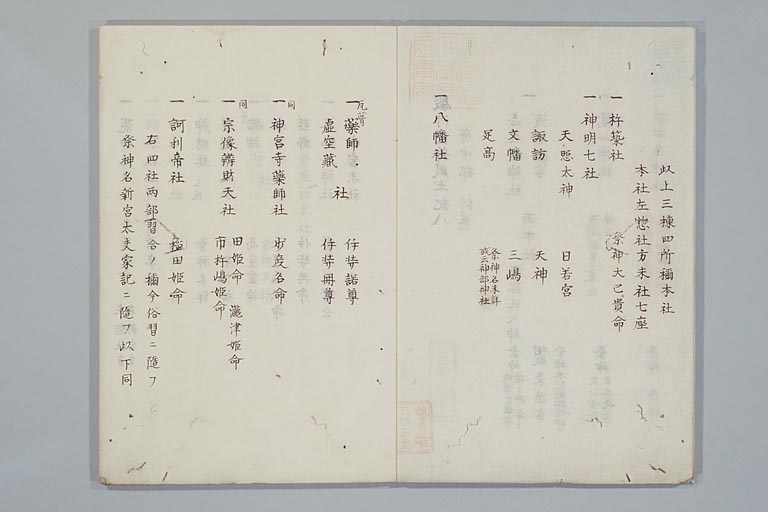 以上三棟四所稱本社
本社左惣社方末社七座
一 杵築社 祭神大己貴命
一 神明七社
天照太神 日若宮
諏訪 天神
文幡 三嶋
足高 祭神名未詳
或云神部神社
一 八幡社
一 藥師 社 伊弉諾尊
虚空蔵 伊弉冊尊
同
一 神宮寺藥師社 少彦名命
同
一 宗像辨財天社 田姫命 瀛津姫命
市杵嶋姫命
一 訶利帝社 稲田姫命
右四社両部習合名稱今俗習ニ隨フ
祭神名新宮太夫家記ニ隨フ以下同